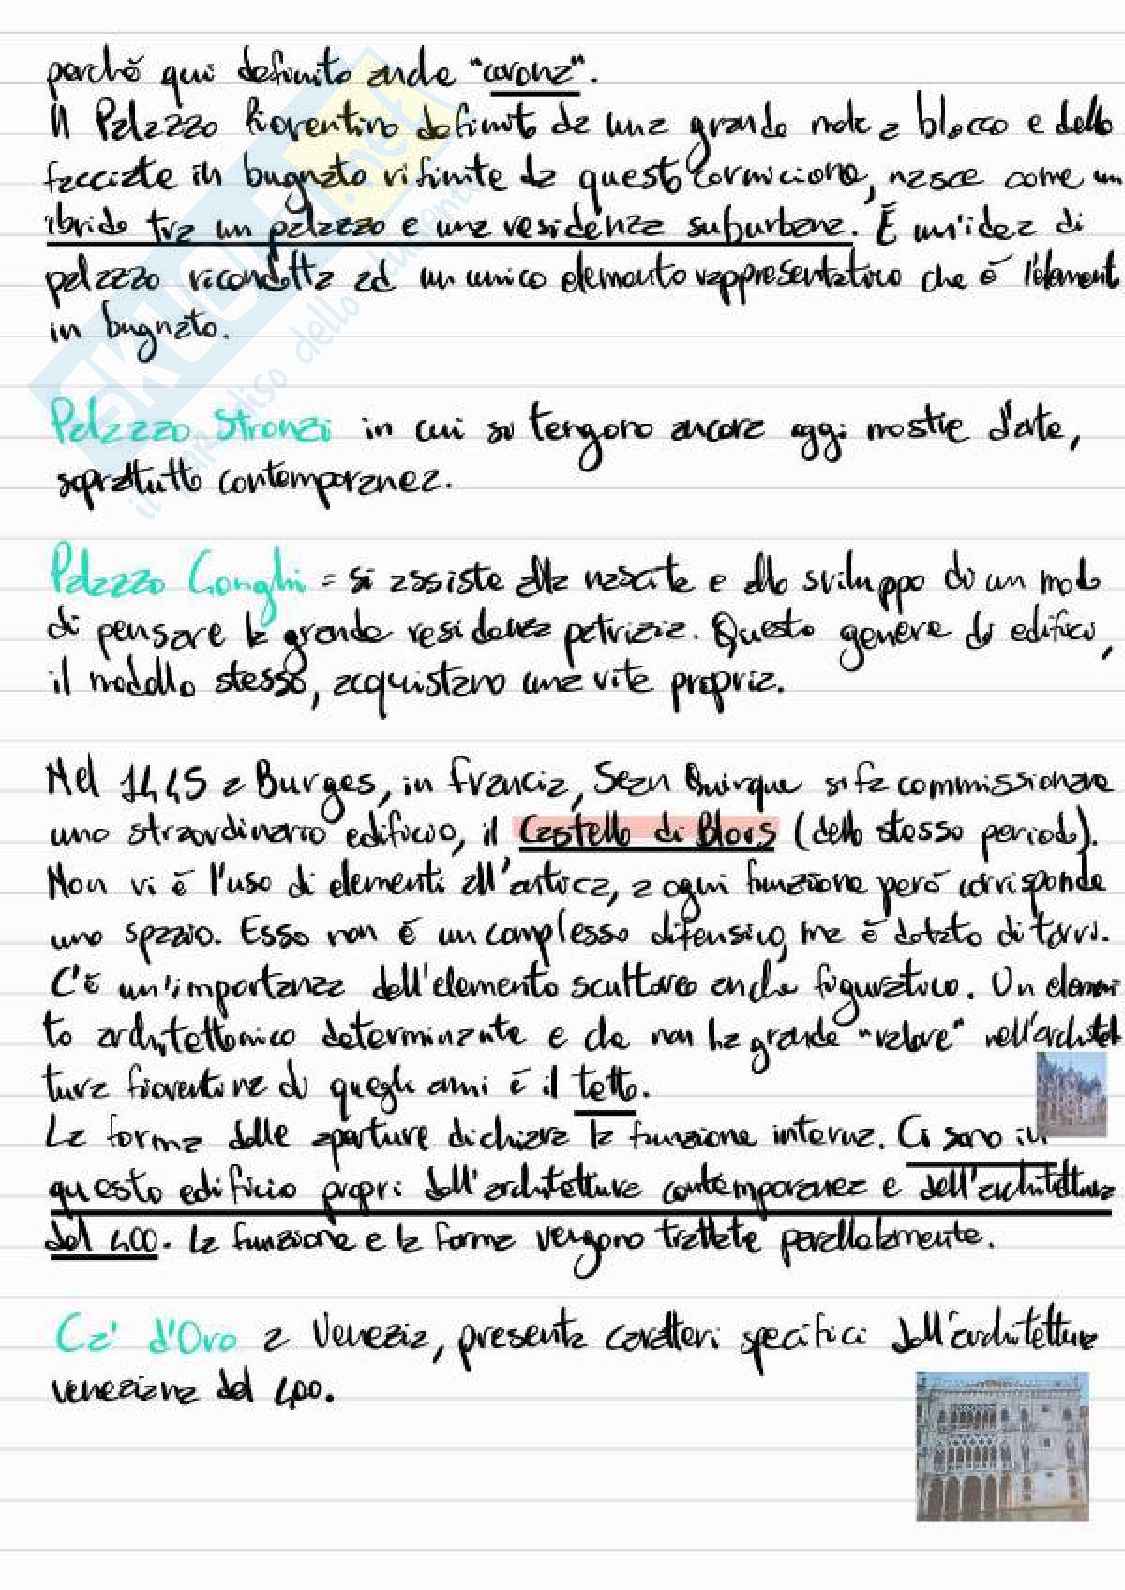 perchè qui definito anche "corona".
Il Palazzo Fiorentino definito da una grande mole a blocco e dalle
facciate in bugnato rifinite da questo cornicione, nasce come un
ibrido tra un palazzo e una residenza suburbana. È un'idea di
palazzo ricondotta ad un unico elemento rappresentativo che è l'element
in bugnato.
Palazzo Stronzi in cui si tengono ancora oggi mostre d'arte,
soprattutto contemporanea.
Palazzo Gonghi = si assiste alla nascita e allo sviluppo di un modo
di pensare la grande residenza patrizia. Questo genere di edifici,
il modello stesso, acquistano una vita propria.
Nel 1445 a Burges, in Francia, Sean Quirque si fa commissionare
uno straordinario edificio, il Castello di Blois (dello stesso periodo).
Non vi è l'uso di elementi all'antica, a ogni funzione però corrisponde
uno spazio. Esso non è un complesso difensivo, ma è dotato di torri.
C'è un'importanza dell'elemento scultoreo anche figurativo. Un elemen
to architettonico determinante e che non ha grande "valore" nell'architet
tura fiorentina di quegli anni è il tetto.
La forma delle aperture dichiara la funzione interna. Ci sono in
questo edificio propri dell'architettura contemporanea e dell'architettura
del 400. La funzione e la forma vengono trattate parallelamente.
Ca' d'Oro a Venezia, presenta caratteri specifici dell'architettura
veneziana del 400.